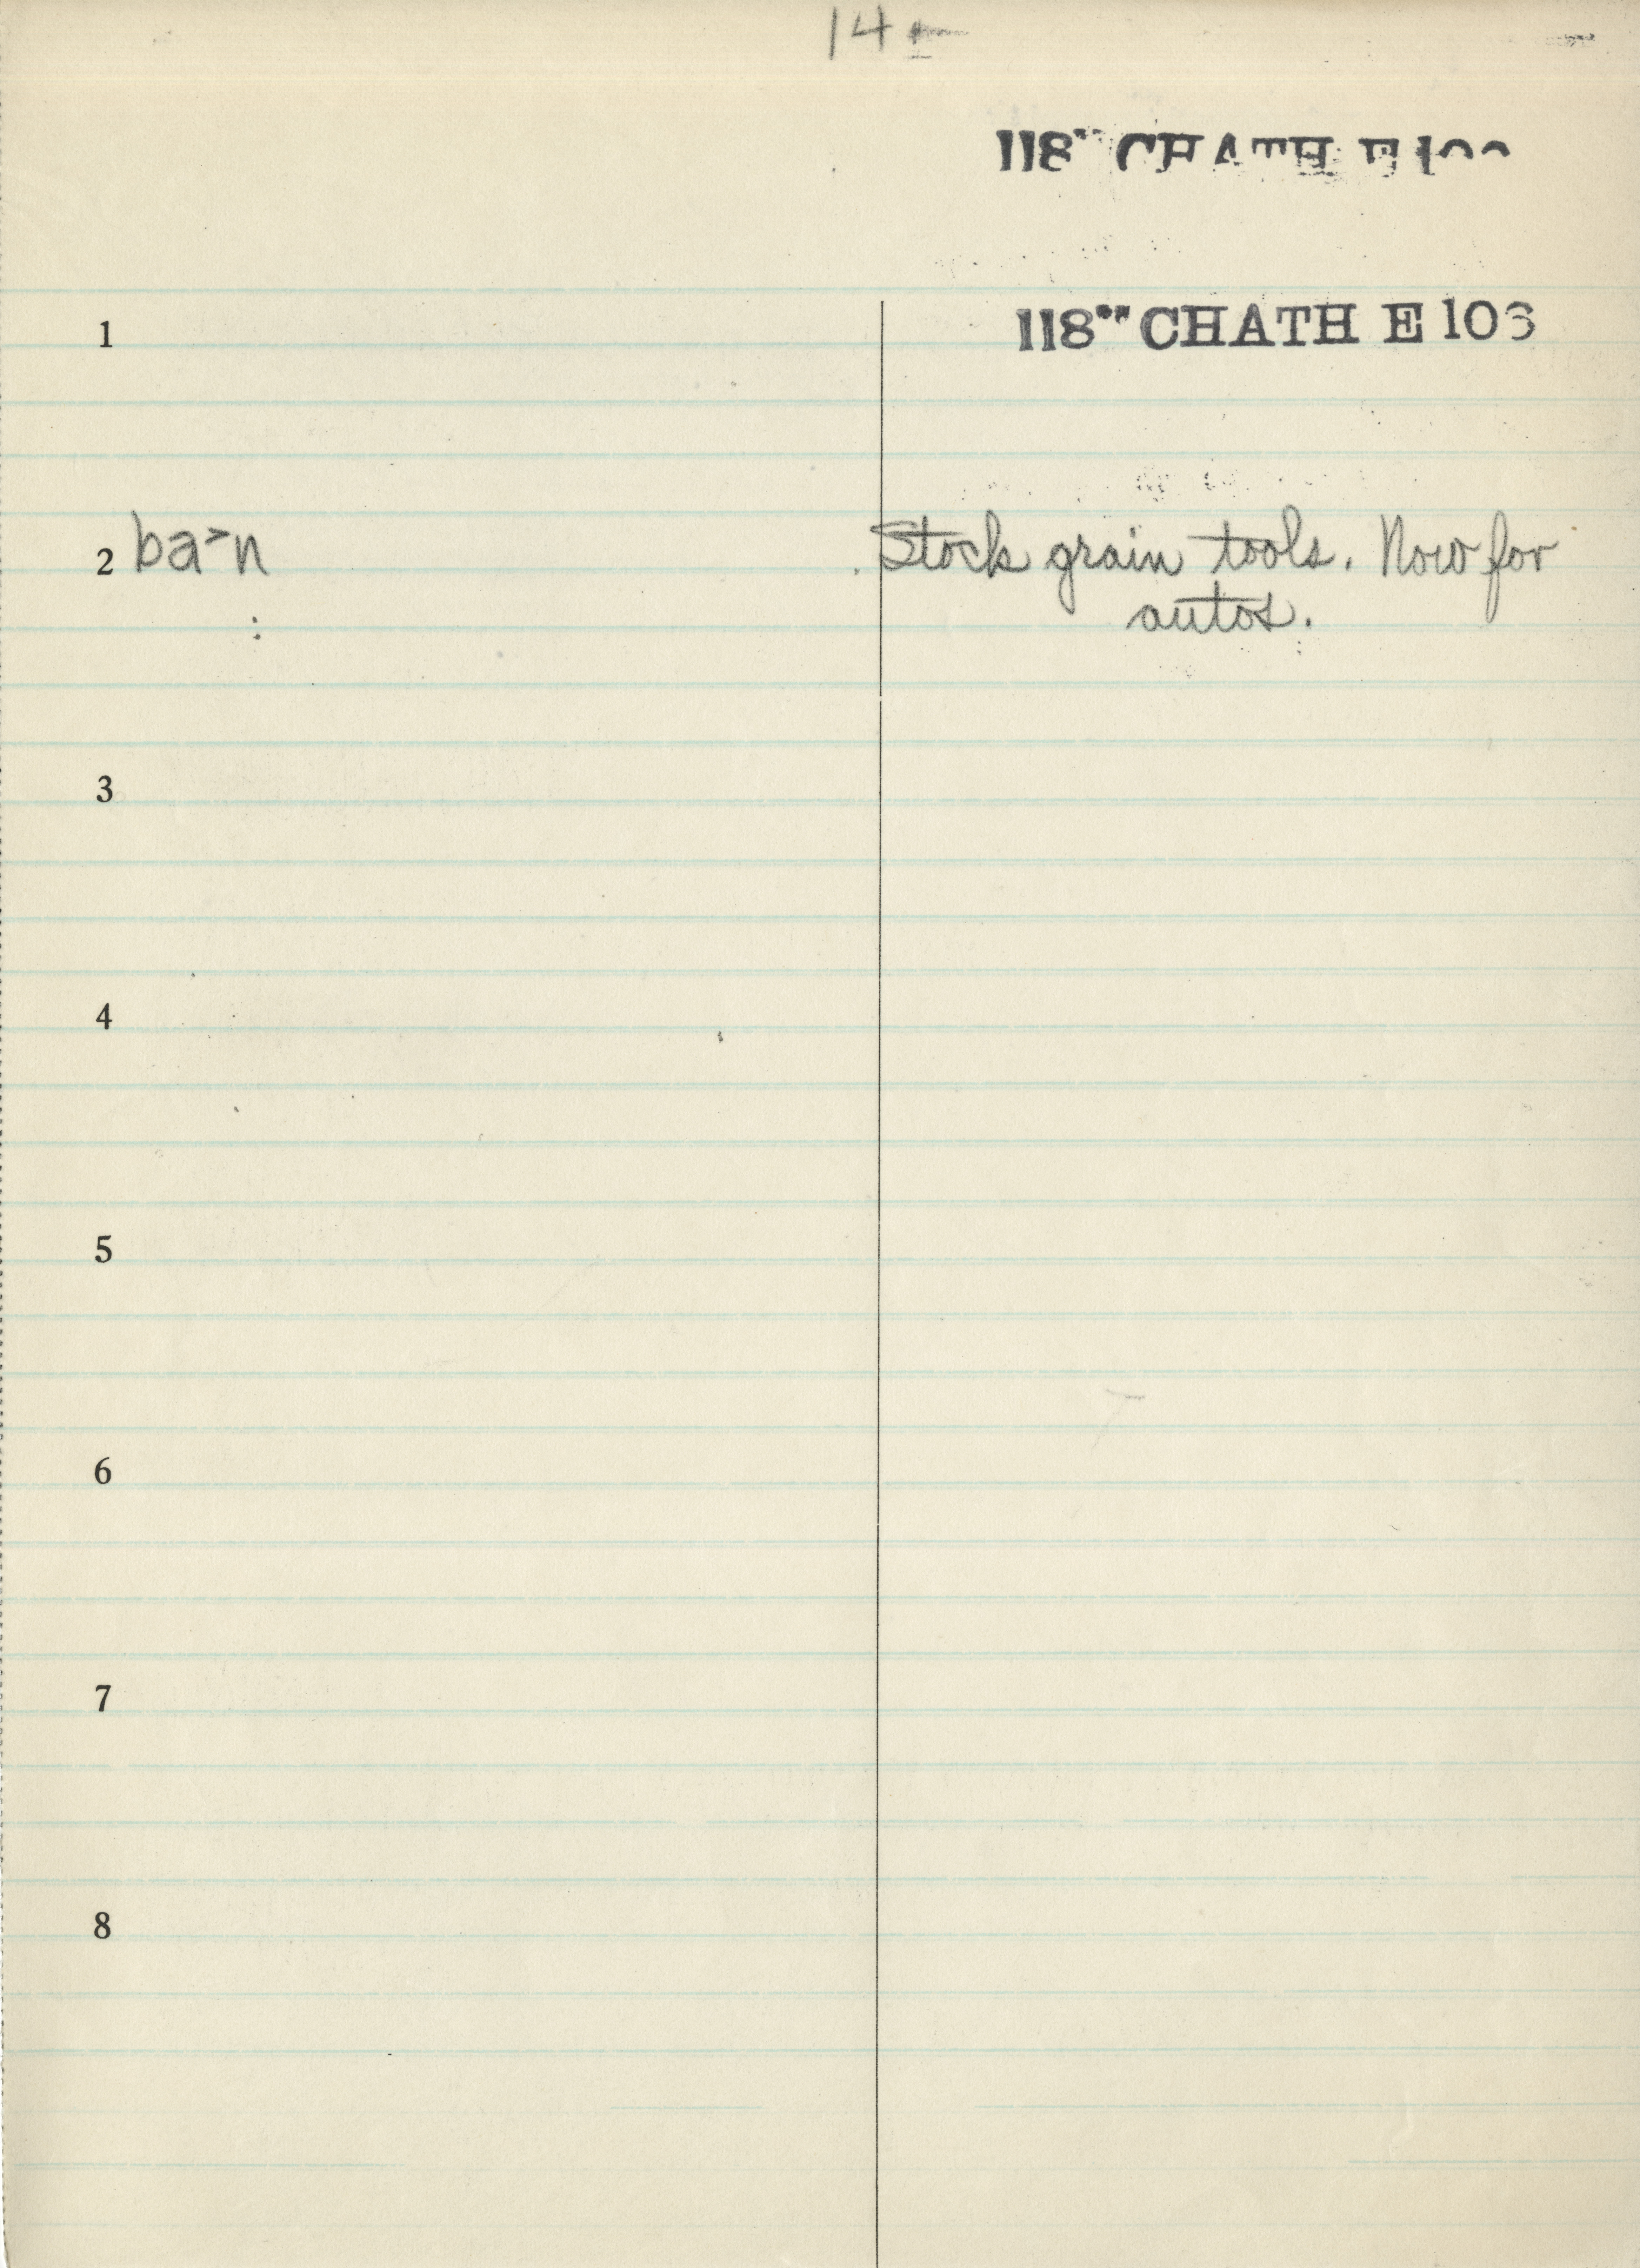 14
118" CHATH E 10
1
118"" CHATH E 103
2 ba>n Stock grain tools. Now for
autos.
3
4
5
6
7
8